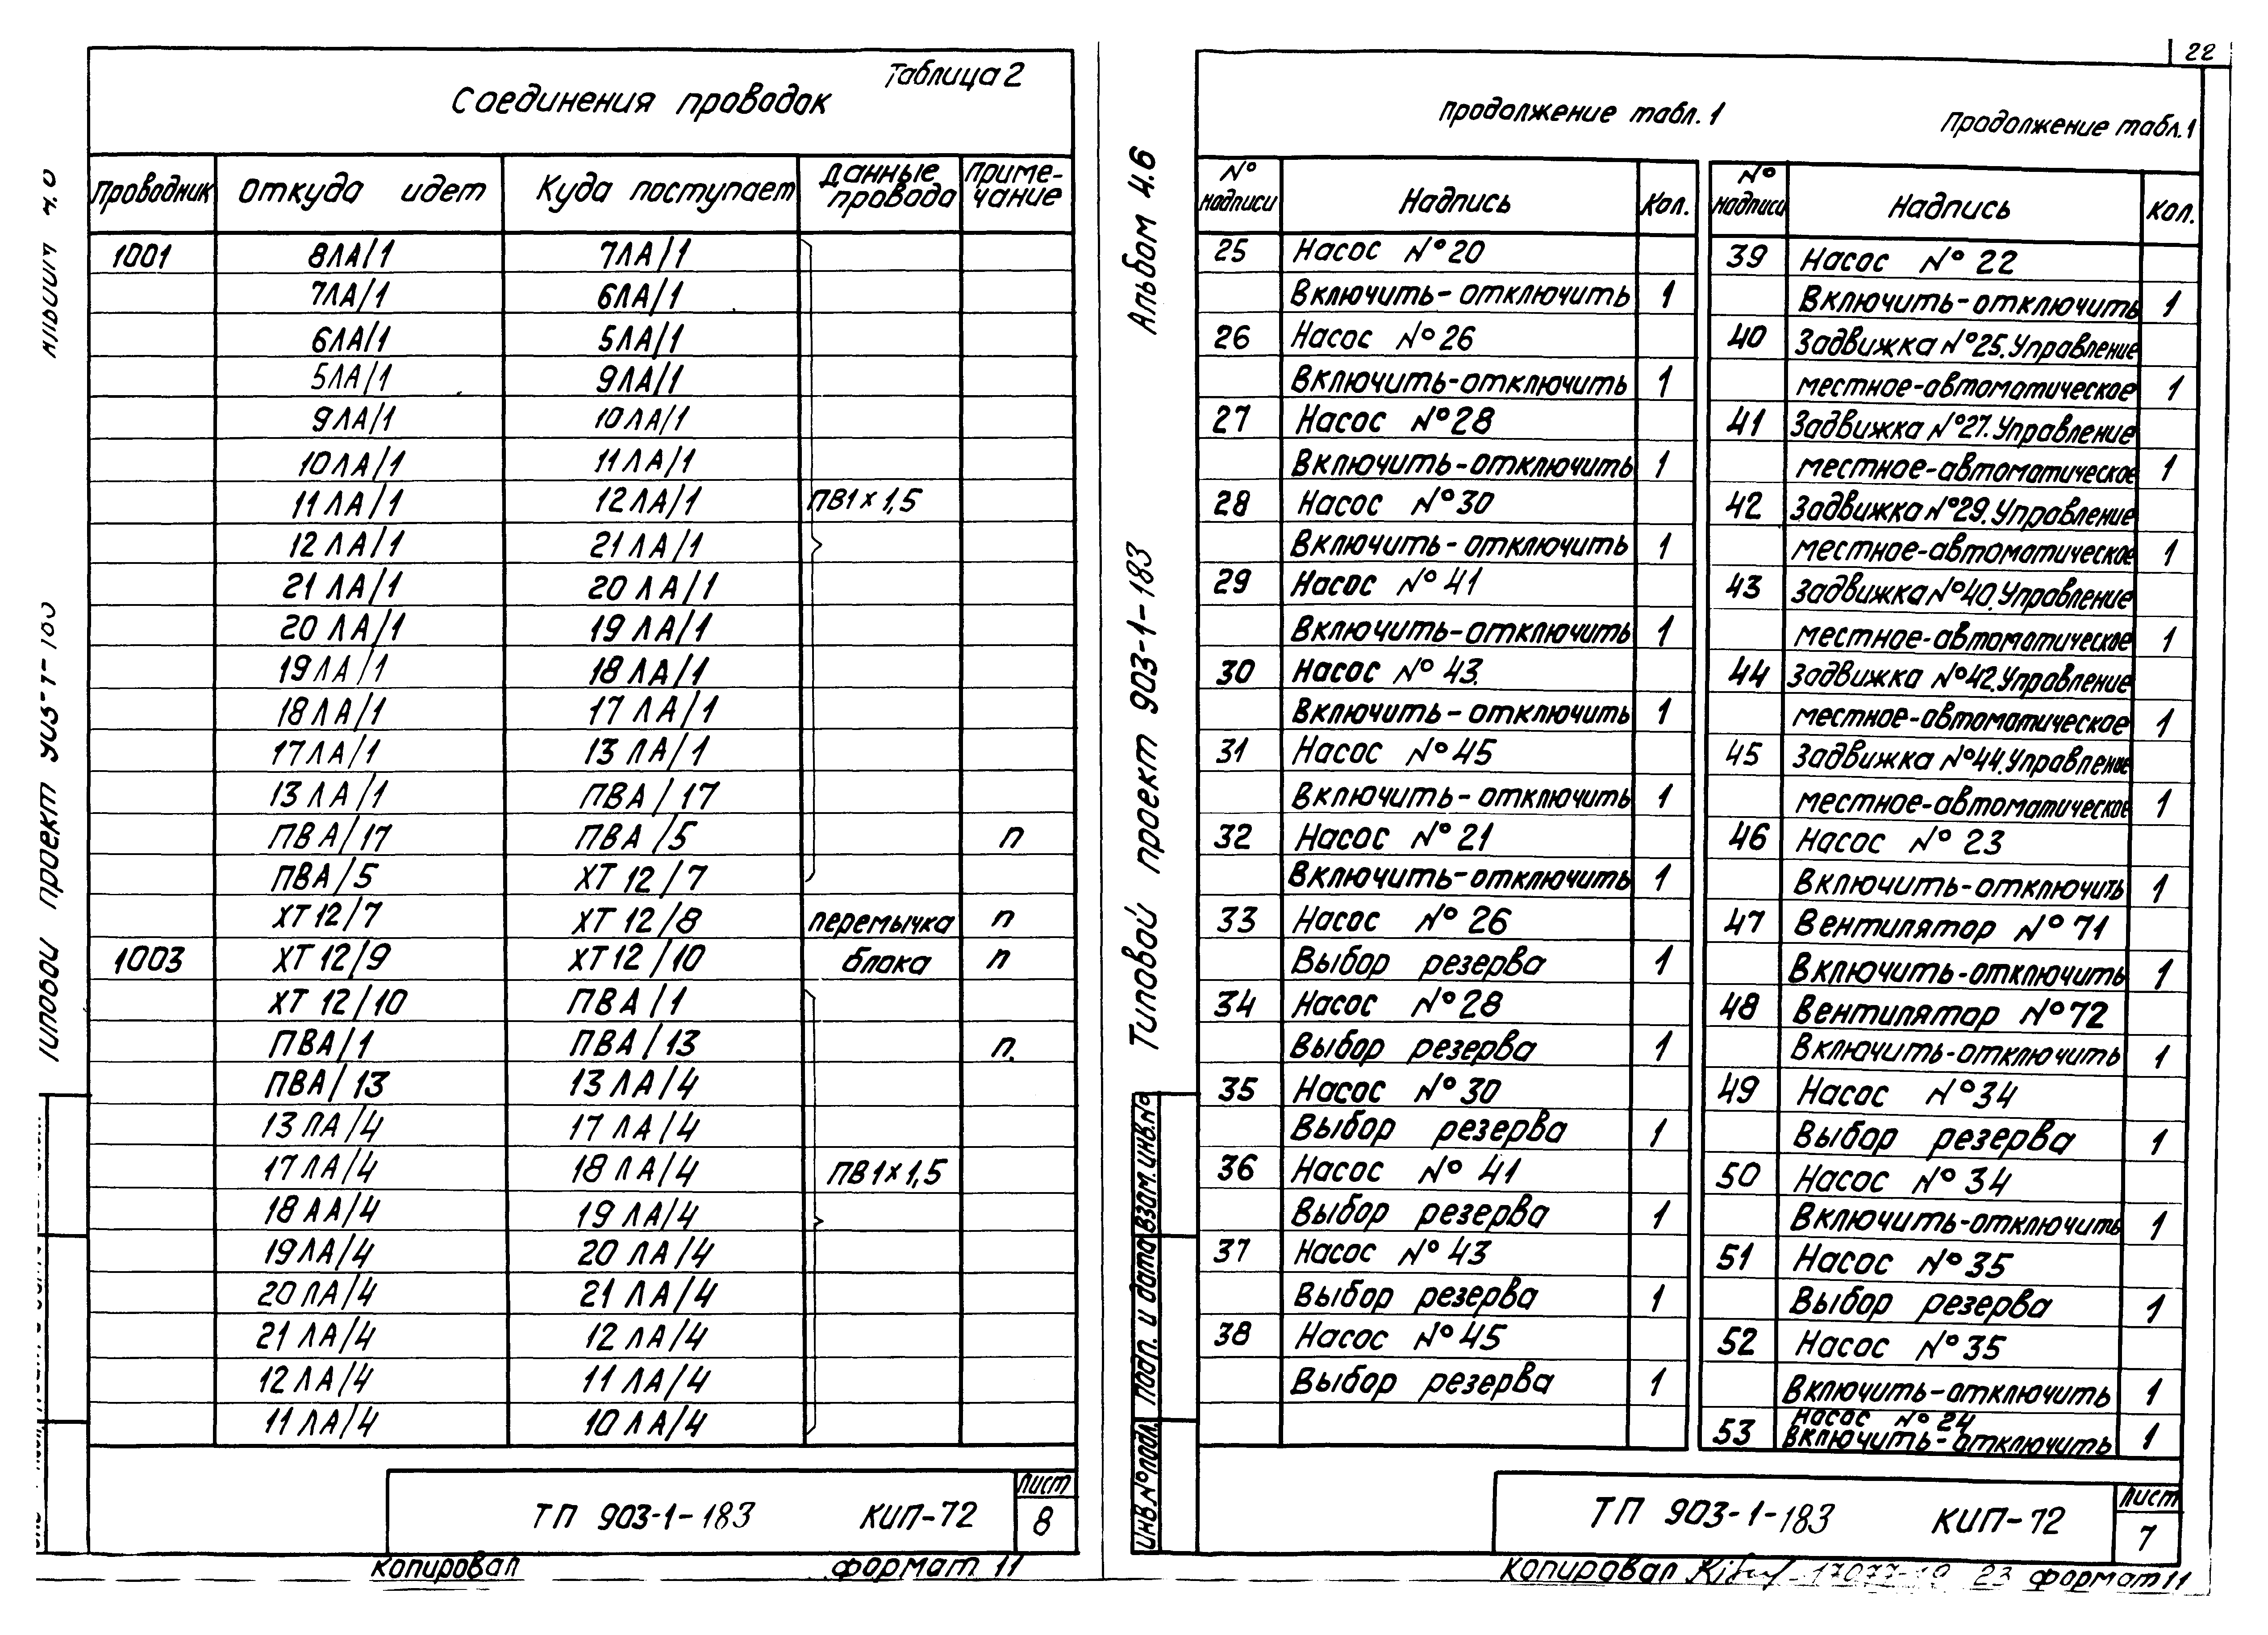 Таблица 2
Соединения проводок
Проводник Откуда идет Куда поступает Данные провода Примечание
1001 8ЛА/1 7ЛА/1
7ЛА/1 6ЛА/1
6ЛА/1 5ЛА/1
5ЛА/1 9ЛА/1
9ЛА/1 10ЛА/1
10ЛА/1 11ЛА/1
11ЛА/1 12ЛА/1 ПВ1х1,5
12ЛА/1 21ЛА/1
21ЛА/1 20ЛА/1
20ЛА/1 19ЛА/1
19ЛА/1 18ЛА/1
18ЛА/1 17ЛА/1
17ЛА/1 13ЛА/1
13ЛА/1 ПВА/17
ПВА/17 ПВА/5 п
ПВА/5 ХТ12/7
ХТ12/7 ХТ12/8 перемычка п
1003 ХТ12/9 ХТ12/10 блока п
ХТ12/10 ПВА/1
ПВА/1 ПВА/13 п.
ПВА/13 13ЛА/4
13ЛА/4 17ЛА/4
17ЛА/4 18ЛА/4 ПВ1х1,5
18АА/4 19ЛА/4
19ЛА/4 20ЛА/4
20ЛА/4 21ЛА/4
21ЛА/4 12ЛА/4
12ЛА/4 11ЛА/4
11ЛА/4 10ЛА/4
ТП 903-1-183 КИП-72
Лист
8
Копировал формат 11
22
Альбом 4.6
Типовой проект 903-1-183
Взам.инв.№
Подп. и дата
Инв.№подл.
Продолжение табл. 1
№ надписи Надпись Кол.
25 Насос №20
Включить-отключить 1
26 Насос №26
Включить-отключить 1
27 Насос №28
Включить-отключить 1
28 Насос №30
Включить-отключить 1
29 Насос №41
Включить-отключить 1
30 Насос №43.
Включить-отключить 1
31 Насос №45
Включить-отключить 1
32 Насос №21
Включить-отключить 1
33 Насос №26
Выбор резерва 1
34 Насос №28
Выбор резерва 1
35 Насос №30
Выбор резерва 1
36 Насос №41
Выбор резерва 1
37 Насос №43
Выбор резерва 1
38 Насос №45
Выбор резерва 1
Продолжение табл.1
№ надписи Надпись Кол.
39 Насос №22
Включить-отключить 1
40 Задвижка №25.Управление
местное-автоматическое 1
41 Задвижка №27.Управление
местное-автоматическое 1
42 Задвижка №29.Управление
местное-автоматическое 1
43 Задвижка №40.Управление
местное-автоматическое 1
44 Задвижка №42.Управление
местное-автоматическое 1
45 Задвижка №44.Управление
местное-автоматическое 1
46 Насос №23
Включить-отключить 1
47 Вентилятор №71
Включить-отключить 1
48 Вентилятор №72
Включить-отключить 1
49 Насос №34
Выбор резерва 1
50 Насос №34
Включить-отключить 1
51 Насос №35
Выбор резерва 1
52 Насос №35
Включить-отключить 1
53 Насос №24
Включить-отключить 1
ТП 903-1-183 КИП-72
Лист
7
Копировал 23 формат 11